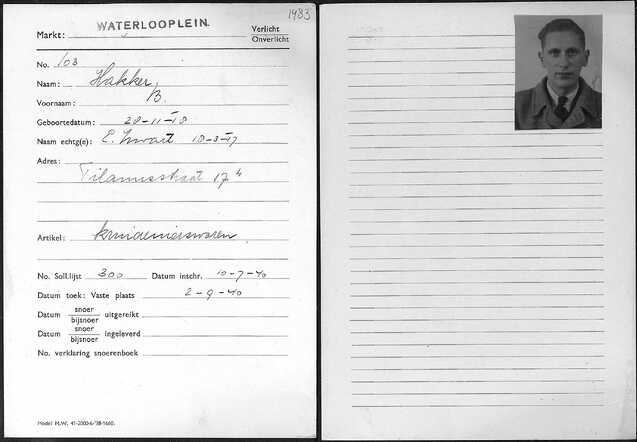 1983
WATERLOOPLEIN.
Markt:
Verlicht
Onverlicht
No. 103
Naam: Hakker,
Voornaam: B.
Geboortedatum: 28-11-18
Naam echtg(e): E. Zwart 18-3-17
Adres:
Tilanusstraat 17 h
Artikel: kruidenierswaren
No. Soll.lijst 300 Datum inschr. 10-7-40
Datum toek: Vaste plaats 2-9-40
Datum snoer
bijsnoer uitgereikt
Datum snoer
bijsnoer ingeleverd
No. verklaring snoerenboek
Model M.W. 41-2000-6/'38-1660.